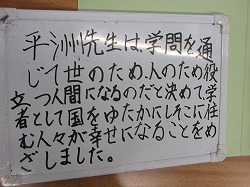 平洲先生は、学問を通
じて世のため、人のため役
立つ人間になるのだと決めて学
者として国をゆたかにしそこに住
む人々が幸せになることをめ
ざしました。